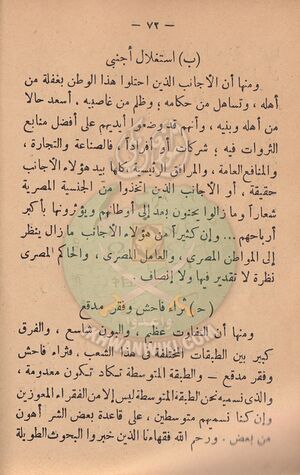 — ٧٢ —
(ب) استغلال أجنبى
ومنها أن الأجانب الذين احتلوا هذا الوطن بغفلة من
أهله ، وتساهل من حكامه ؛ وظلم من غاصبيه . أسعد حالا
من أهله وبنيه ، وأنهم قد وضعوا أيديهم على أفضل منابع
الثروات فيه ؛ شركات أو أفراداً ، فالصناعة والتجارة ،
والمنافع العامة ، والمرافق الرئيسية كلها بيد هؤلاء الأجانب
حقيقة ، أو الأجانب الذين اتخذوا من الجنسية المصرية
شعاراً وما زالوا يحنون بعد إلى أوطانهم ويؤثرونها بأكبر
أرباحهم ... وإن كثيراً من هؤلاء الأجانب ما زال ينظر
إلى المواطن المصرى ، والعامل المصرى ، والحاكم المصرى
نظرة لا تقدير فيها ولا إنصاف .
(ح) ثراء فاحش وفقر مدقع
ومنها أن التفاوت عظيم ، والبون شاسع ، والفرق
كبير بين الطبقات المختلفة فى هذا الشعب ، فثراء فاحش
وفقر مدقع — والطبقة المتوسطة تكاد تكون معدومة ،
والذى نسميه نحن الطبقة المتوسطة ليس إلا من الفقراء المعوزين
وإن كنا نسميهم متوسطين ، على قاعدة بعض الشر أهون
من بعض . ورحم الله فقهاءنا الذين خبروا البحوث الطويلة
IKHWANWIKI.COM